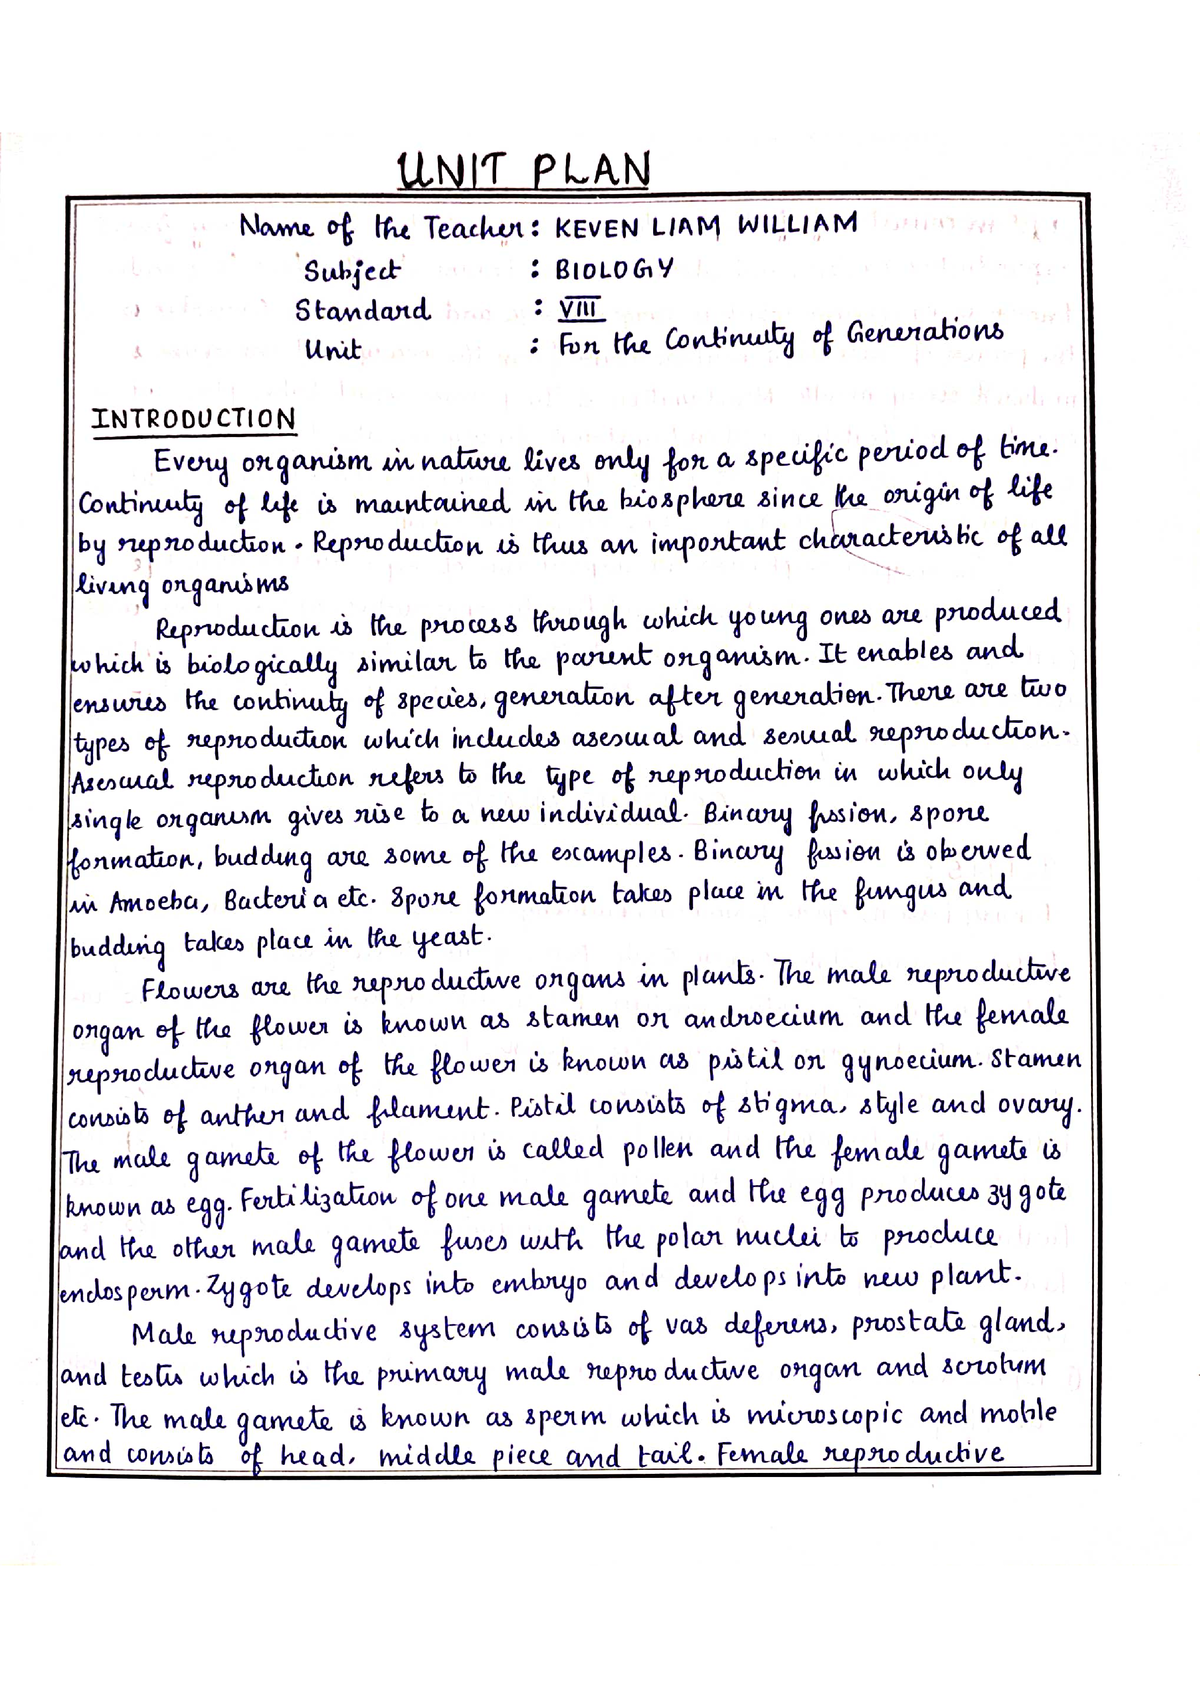 UNIT PLAN
Name of the Teacher : KEVEN LIAM WILLIAM
Subject : BIOLOGY
Standard : VIII
Unit : For the Continuity of Generations
INTRODUCTION
Every organism in nature lives only for a specific period of time.
Continuity of life is maintained in the biosphere since the origin of life
by reproduction. Reproduction is thus an important characteristic of all
living organisms
Reproduction is the process through which young ones are produced
which is biologically similar to the parent organism. It enables and
ensures the continuity of species, generation after generation. There are two
types of reproduction which includes asexual and sexual reproduction.
Asexual reproduction refers to the type of reproduction in which only
single organism gives rise to a new individual. Binary fission, spore
formation, budding are some of the examples. Binary fission is oberved
in Amoeba, Bacteria etc. Spore formation takes place in the fungus and
budding takes place in the yeast.
Flowers are the reproductive organs in plants. The male reproductive
organ of the flower is known as stamen or androecium and the female
reproductive organ of the flower is known as pistil or gynoecium. Stamen
consists of anther and filament. Pistil consists of stigma, style and ovary.
The male gamete of the flower is called pollen and the female gamete is
known as egg. Fertilization of one male gamete and the egg produces zygote
and the other male gamete fuses with the polar nuclei to produce
endosperm. Zygote develops into embryo and develops into new plant.
Male reproductive system consists of vas deferens, prostate gland,
and testis which is the primary male reproductive organ and scrotum
etc. The male gamete is known as sperm which is microscopic and motile
and consists of head, middle piece and tail. Female reproductive